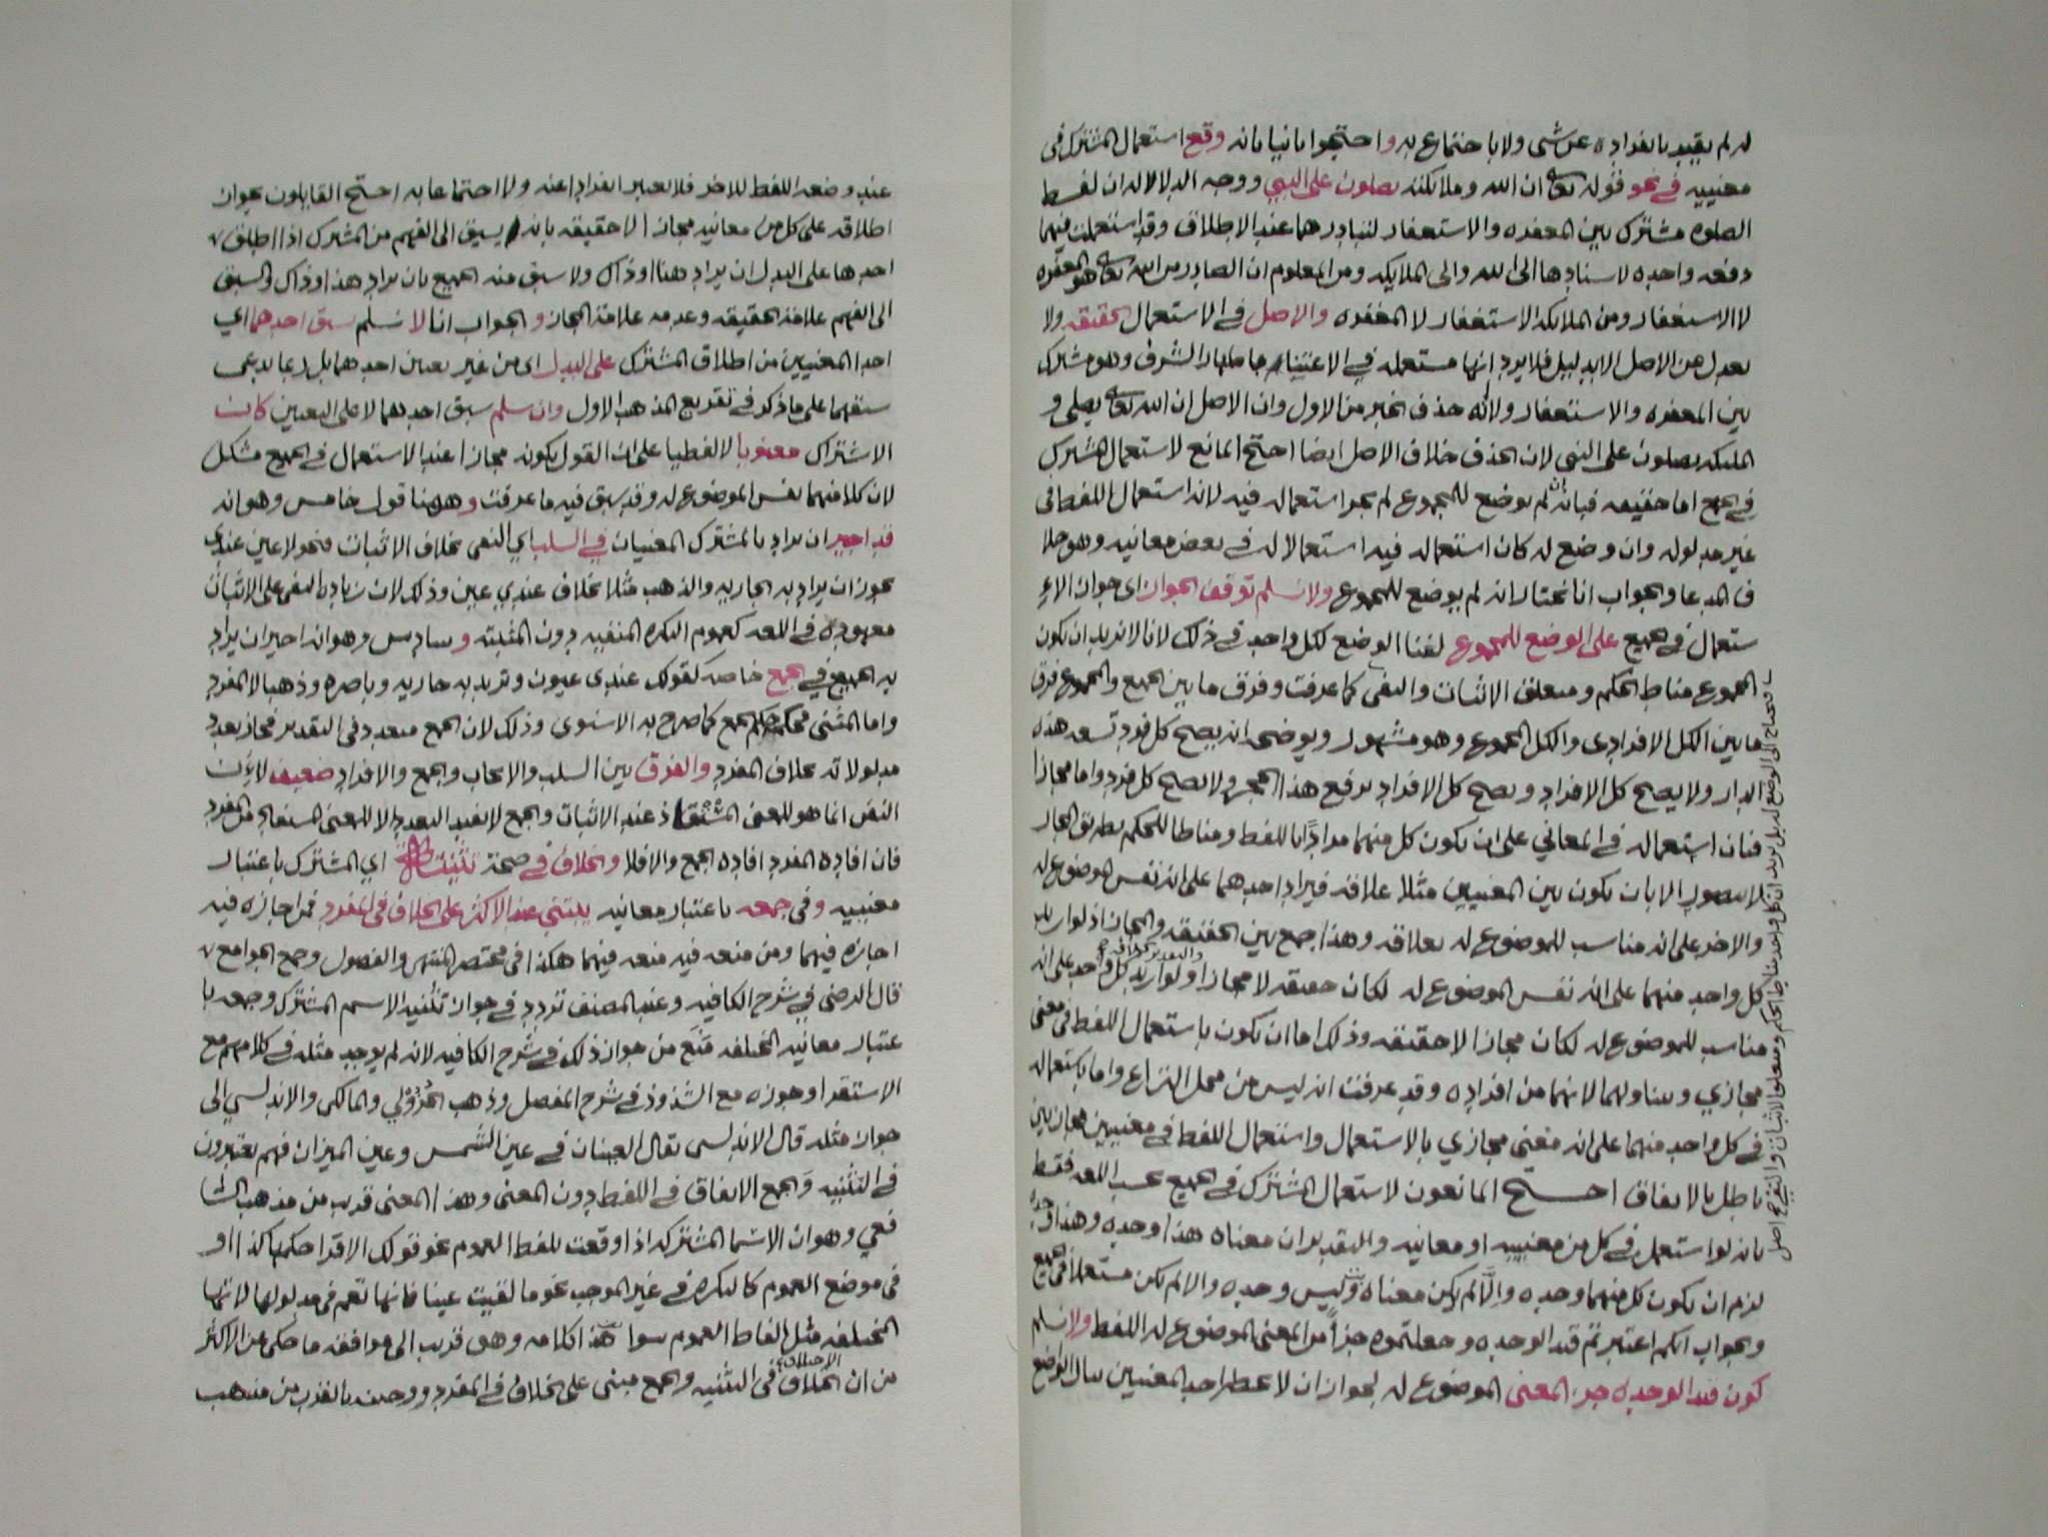 له لم يقيد بانفراده عن شي ولا باجتماع به واحتجوا ثانيا بانه وقع استعمال المشترك في
معنييه في نحو قوله تعالى ان الله وملائكته يصلون على النبي ووجه الدلالة ان لفظ
الصلوه مشترك بين المغفره والاستغفار لتبادرهما عند الاطلاق وقد استعملت فيهما
دفعه واحده لاسنادها الى الله والى الملايكه ومن المعلوم ان الصادر من الله تعالى هو المغفره
لا الاستغفار ومن الملائكه الاستغفار لا المغفره والاصل في الاستعمال الحقيقه ولا
يعدل عن الاصل الا بدليل فلا يرد انها مستعمله في الاعتناء باظهار الشرف وهو مشترك
بين المغفره والاستغفار ولانه حذف الخبر من الاول وان الاصل ان الله تعالى يصلي و
الملئكه يصلون على النبي لان الحذف خلاف الاصل ايضا احتج المانع لاستعمال المشترك
في الجمع اما حقيقه فبانه ان لم يوضع للمجموع لم يجز استعماله فيه لانه استعمال اللفظ في
غير مدلوله وان وضع له كان استعماله فيه استعمالا له في بعض معانيه وهو خلا
ف المدعا والجواب انا نختار انه لم يوضع للمجموع ولا نسلم توقف الجواز اى جواز الا
ستعمال في الجميع على الوضع للمجموع لفنا الوضع لكل واحد في ذلك لانا لا نريد ان يكون
المجموع مناط الحكم ومتعلق الاثبات والنفى كما عرفت وفرق ما بين الجميع والمجموع فرق
ما بين الكل الافرادى والكل المجموع وهو مشهور ويوضحه انه يصح كل فرد تسعه هذه
الدار ولا يصح كل الافراد ويصح كل الافراد يرفع هذا الحجر ولا يصح كل فرد واما مجازا
فبان استعماله في المعاني على ان يكون كل منهما مرادا باللفظ ومناطا للحكم بطريق المجاز
لا يتصور الا بان يكون بين المعنيين مثلا علاقه فيراد احدهما على انه نفس الموضوع له
والاخر على انه مناسب للموضوع له بعلاقه وهذا جمع بين الحقيقه والمجاز اذ لو اريد
كل واحد منهما على انه نفس الموضوع له لكان حقيقه لا مجازا ولو اريد كل واحد على انه
مناسب للموضوع له لكان مجازا لا حقيقه وذلك اما ان يكون باستعمال اللفظ في معنى
مجازي ويتناولهما لانهما من افراده وقد عرفت انه ليس من محل النزاع واما باستعماله
في كل واحد منهما على انه معنى مجازي بالاستعمال واستعمال اللفظ في معنيين مجازيين
باطل بالاتفاق احتج المانعون لاستعمال المشترك في الجميع بحسب اللغه فقط
بانه لو استعمل في كل من معنييه او معانيه والتقدير ان معناه هذا وحده وهذا وحده
لزم ان يكون كل منهما وحده والا لم يكن معناه وليس وحده والا لم يكن مستعملا في الجميع
والجواب انكم اعتبرتم قيد الوحده وجعلتموه جزأ من المعنى الموضوع له اللفظ ولا نسلم
كون قيد الوحده جزء المعنى الموضوع له لجواز ان لا يخطر احد المعنيين ببال الواضع
عند وضعه اللفظ للاخر فلا يعتبر انفرادا عنه ولا اجتماعا به احتج القايلون بجواز
اطلاقه على كل من معانيه مجازا لا حقيقه بانه يسبق الى الفهم من المشترك اذا اطلق
احدها على البدل ان يراد هذا او ذاك ولا سبق منه الجميع بان يراد هذا وذاك والسبق
الى الفهم علامة الحقيقه وعدمه علامة المجاز والجواب انا لا نسلم سبق احدهما اي
احد المعنيين من اطلاق المشترك على البدل اى من غير تعيين احدهما بل ربما يدعى
سبقهما على ما ذكر في تقريع المذهب الاول وان سلم سبق احدهما لا على التعيين كان
الاشتراك معنويا لا لفظيا على ان القول بكونه مجازا عند الاستعمال في الجميع مشكل
لان كلا منهما نفس الموضوع له وقد سبق فيه ما عرفت وههنا قول خامس وهو انه
قد اجيز ان يراد بالمشترك المعنيان في السلب اي النفى بخلاف الاثبات فنحو لا عين عندي
يجوز ان يراد به الجاريه والذهب مثلا بخلاف عندي عين وذلك لان زيادة النفى على الاثبات
معهودة في اللغه كعموم النكره المنفيه دون المثبته وسادس وهو انه اجيز ان يراد
به الجميع في الجمع خاصه كقولك عندى عيون وتريد به جاريه وباصره وذهبا لا المفرد
واما المثنى فحكمه حكم الجمع كما صرح به الاسنوى وذلك لان الجمع متعدد في التقدير فجاز تعدد
مدلولاته بخلاف المفرد والفرق بين السلب والايجاب والجمع والافراد ضعيف لان
النفى انما هو للمعنى المستفاد عند الاثبات والجمع لا يفيد التعدد الا للمعنى المستفاد من المفرد
فان افاده المفرد افاده الجمع والا فلا والخلاف في صحة تثنيته اي المشترك باعتبار
معنييه وفى جمعه باعتبار معانيه يبتني عند الاكثر على الخلاف في المفرد فمن اجازه فيه
اجازه فيهما ومن منعه فيه منعه فيهما هكذا في مختصر المنتهى والفصول وجمع الجوامع
قال الرضى في شرح الكافيه وعند المصنف تردد في جواز تثنيه الاسم المشترك وجمعه با
عتبار معانيه المختلفه فمنع من جواز ذلك في شرح الكافيه لانه لم يوجد مثله في كلامهم مع
الاستقراء وجوزه مع الشذوذ في شرح المفصل وذهب الجزولي والمالكى والاندلسي الى
جواز مثله قال الاندلسى يقال العينان في عين الشمس وعين الميزان فهم يعتبرون
في التثنيه والجمع الاتفاق في اللفظ دون المعنى وهذا المعنى قريب من مذهب الشا
فعي وهو ان الاسما المشتركه اذا وقعت بلفظ العموم نحو قولك الاقراء حكمها كذا او
في موضع العموم كالنكره في غير الموجب نحو ما لقيت عينا فانها تعم في مدلولها لانها
المختلفه مثل الفاظ العموم سوا هذا كلامه وهو قريب الى موافقه ما حكى عن الاكثر
من ان الخلاف في التثنيه والجمع مبنى على الخلاف في المفرد ووصف بالقرب من مذهب